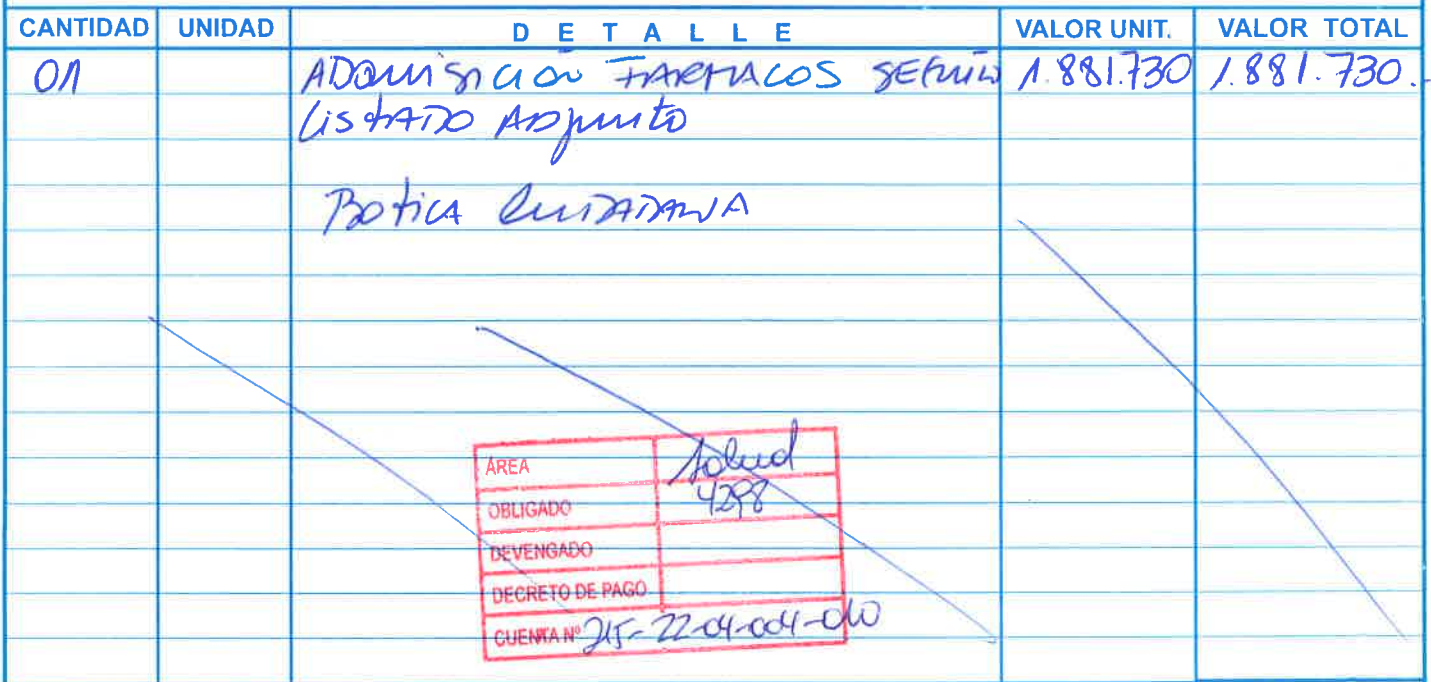 CANTIDAD UNIDAD DETALLE VALOR UNIT. VALOR TOTAL
01 ADQUISICION FARMACOS SEGUN 1.881.730 1.881.730.-
LISTADO ADJUNTO
BOTICA CIUDADANA
ÁREA Salud
OBLIGADO 4298
DEVENGADO
DECRETO DE PAGO
CUENTA Nº 215-22-04-004-010